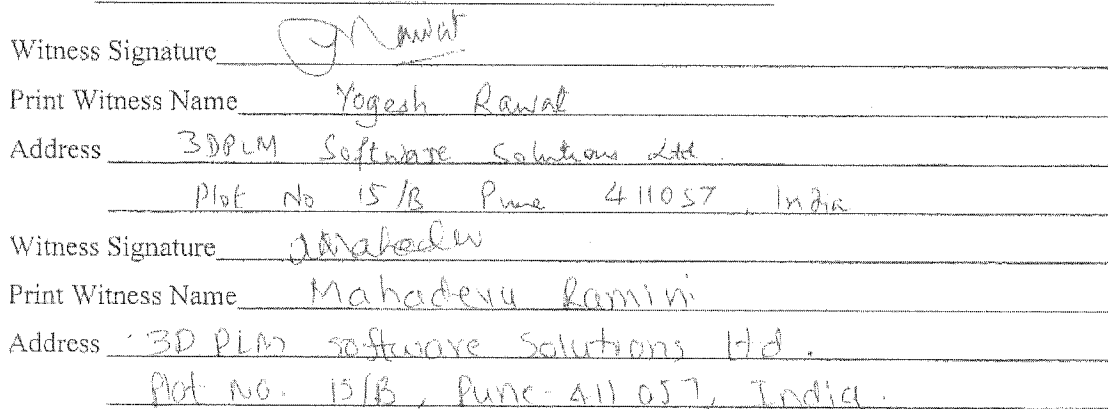 Witness Signature Rawat
Print Witness Name Yogesh Rawat
Address 3DPLM Software Solutions Ltd.
Plot No 15/B Pune 411057, India
Witness Signature Mahadev
Print Witness Name Mahadevu Ramini
Address 3D PLM software Solutions Ltd.
Plot No. 15/B, Pune-411 057, India.